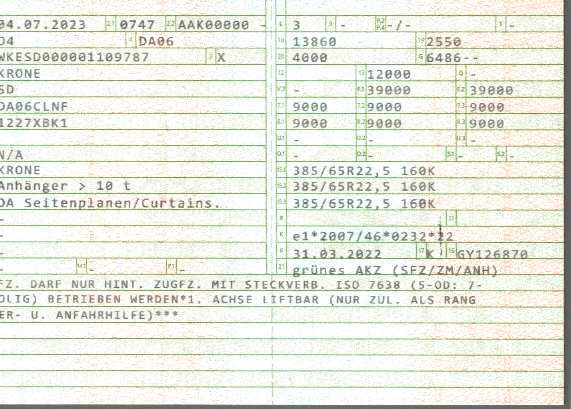 04.07.2023 0747 AAK00000 - 3 - -/- -
04 DA06 13860 2550
WKESD000001109787 X 4000 6486--
KRONE 12000 -
SD - 39000 39000
DA06CLNF 9000 9000 9000
1227XBK1 9000 9000 9000
- - -
N/A - - - -
KRONE 385/65R22,5 160K
Anhänger > 10 t 385/65R22,5 160K
DA Seitenplanen/Curtains. 385/65R22,5 160K
-
- e1*2007/46*0232*22
- 31.03.2022 K GY126870
- - - grünes AKZ (SFZ/ZM/ANH)
FZ. DARF NUR HINT. ZUGFZ. MIT STECKVERB. ISO 7638 (5-OD: 7-
OLIG) BETRIEBEN WERDEN*1. ACHSE LIFTBAR (NUR ZUL. ALS RANG
ER- U. ANFAHRHILFE)***